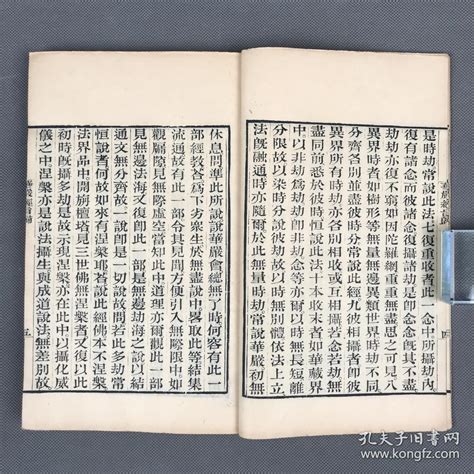 是時劫常說此法七復重收者此一念中所攝劫內
復有諸念而彼諸念復攝諸劫是即念念既其不盡
劫劫亦復不窮如因陀羅網重重無盡思之可見八
異界時者如樹形等無量異類世界時劫不同
分齊各別並彼時分常說此經九彼相攝者即彼
異界所有時劫亦各別相收或互相攝若念若劫無
盡同前悉於彼時恒說此法十本收末者如華藏界
中以非劫為劫非劫即劫念等亦爾以時無長短離
分限故以染時分說彼劫故以時無別體依法上立
法既融通時亦隨爾於此無量時劫常說華嚴初無
休息問準此所說說華嚴會總無了時何容有此一
部經教答為下劣眾生於無盡說中略取此等結集
流通故有此一部令其見聞方便引入無際限中如
觀牖隙見無際虛空當知此中道理亦爾觀此一部
見無邊法海又復即此一部是無邊劫海之說以結
通文無分齊故一說即是一切說故問若此多劫常
恒說者何故如來有涅槃耶答說此經佛本不涅槃
法界品中開旃檀塔見三世佛無涅槃者又復以此
初時既攝多劫是故示現涅槃亦在此中以攝化威
儀之中涅槃亦是說法攝生與成道說法無差別故
孔夫子旧书网
www.kongfz.com